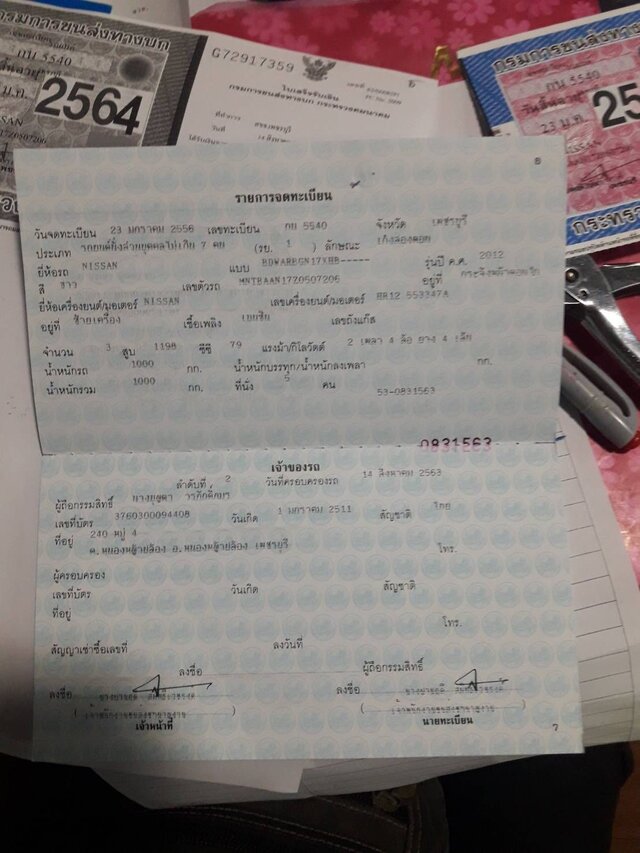 กรมการขนส่งทางบก
กน 5540
2564
NISSAN
G72917359
ใบเสร็จรับเงิน
กรมการขนส่งทางบก กระทรวงคมนาคม
กรมการขนส่งทางบก
กน 5540
วันสิ้นอายุ
23 ม.ค.
25
6
รายการจดทะเบียน
วันจดทะเบียน 23 มกราคม 2556 เลขทะเบียน กน 5540 จังหวัด เพชรบุรี
ประเภท รถยนต์นั่งส่วนบุคคลไม่เกิน 7 คน (รย. 1 ) ลักษณะ เก๋งสองตอน
ยี่ห้อรถ NISSAN แบบ BDWARBGN17XHB----- รุ่นปี ค.ศ. 2012
สี ขาว เลขตัวรถ MNTBAAN17Z0507206 อยู่ที่
ยี่ห้อเครื่องยนต์/มอเตอร์ NISSAN เลขเครื่องยนต์/มอเตอร์ HR12 553347A
อยู่ที่ ซ้ายเครื่อง เชื้อเพลิง เบนซิน เลขถังแก๊ส
จำนวน 3 สูบ 1198 ซีซี 79 แรงม้า/กิโลวัตต์ 2 เพลา 4 ล้อ ยาง 4 เส้น
น้ำหนักรถ 1000 กก. น้ำหนักบรรทุก/น้ำหนักลงเพลา กก.
น้ำหนักรวม 1000 กก. ที่นั่ง 5 คน
53-0831563
0831563
เจ้าของรถ
ลำดับที่ 2 วันที่ครอบครองรถ 14 สิงหาคม 2563
ผู้ถือกรรมสิทธิ์
เลขที่บัตร 3760300094408 วันเกิด 1 มกราคม 2511 สัญชาติ ไทย
ที่อยู่ 240 หมู่ 4
ต.หนองหญ้าปล้อง อ.หนองหญ้าปล้อง เพชรบุรี โทร.
ผู้ครอบครอง
เลขที่บัตร วันเกิด สัญชาติ
ที่อยู่
โทร.
สัญญาเช่าซื้อเลขที่ ลงวันที่
ลงชื่อ ผู้ถือกรรมสิทธิ์
ลงชื่อ ลงชื่อ
เจ้าหน้าที่ นายทะเบียน
7